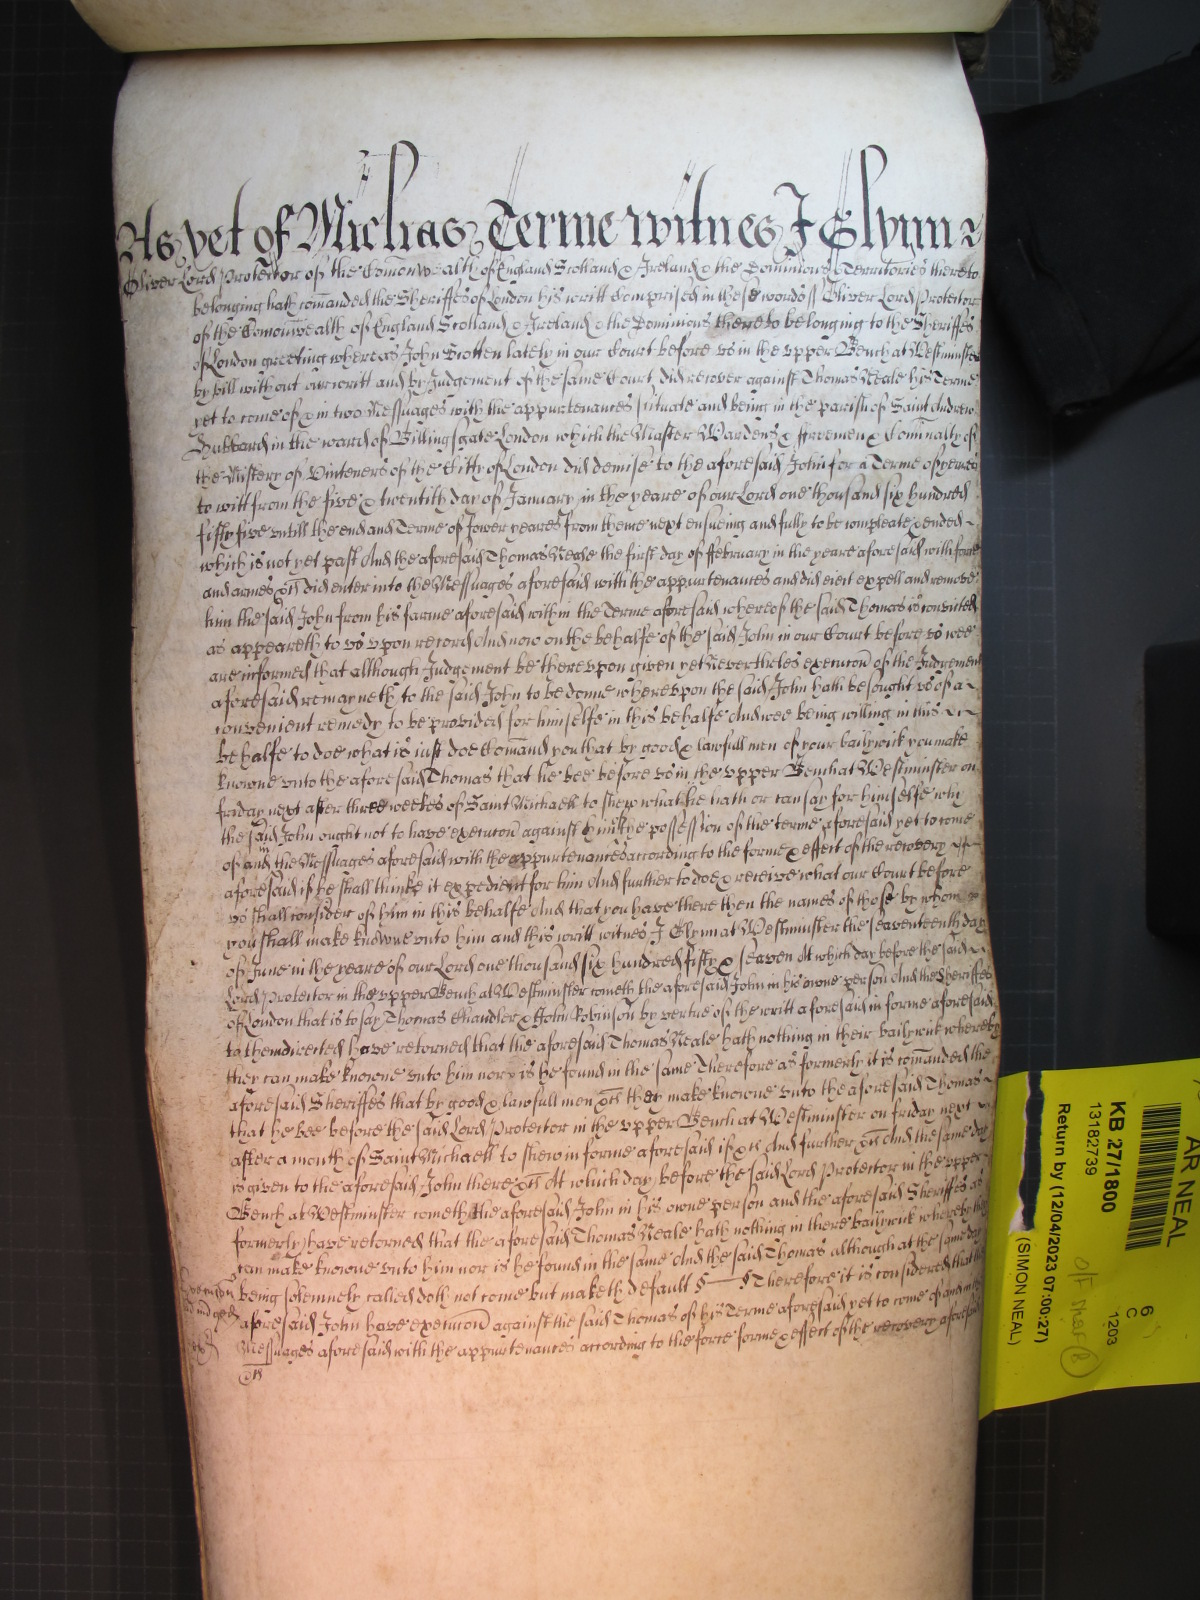 As yet of Michas Terme witnes J Glynn
Oliver Lord Protector of the Comonwealth of England Scotland & Ireland & the Dominions & Territories thereto
belonging hath comanded the Sheriffes of London his writt Comprised in these words ss Oliver Lord Protector
of the Comonwealth of England Scotland & Ireland & the Dominions thereto belonging to the Sheriffes
of London greeting whereas John Trotten lately in our Court before vs in the vpper Bench at Westminster
by bill without our writt and by Judgement of the same Court did recover against Thomas Neale his Terme
yet to come of & in two Messuages with the appurtenances scituate and being in the parish of Saint Andrew
Hubbard in the ward of Billingsgate London which the Master Wardens & ffreemen & Cominalty of
the Mistery of Vinteners of the Citty of London did demise to the aforesaid John for a Terme of yeares
to witt from the five & twentith day of January in the yeare of our Lord one thousand six hundred
fifty five vntill the end and Terme of fower yeares from thence next ensueing and fully to be compleate & ended
which is not yet past And the aforesaid Thomas Neale the first day of ffebruary in the yeare aforesaid with force
and armes &c did enter into the Messuages aforesaid with the appurtenances and did eiect expell and remove
him the said John from his farme aforesaid within the Terme aforesaid whereof the said Thomas is convicted
as appeareth to vs vpon record And now on the behalfe of the said John in our Court before vs wee
are informed that although Judgement be therevpon given yet Nevertheles execucon of the Judgement
aforesaid remayneth to the said John to be donne wherevpon the said John hath besought vs of a
convenient remedy to be provided for himselfe in this behalfe And wee being willing in this
behalfe to doe what is iust doe Comand you that by good & lawfull men of your bailywick you make
knowne vnto the aforesaid Thomas that he bee before vs in the vpper Bench at Westminster on
friday next after three weekes of Saint Michaell to shew what he hath or can say for himselfe why
the said John ought not to have execucon against him of the possession of the terme aforesaid yet to come
of and in the Messuages aforesaid with the appurtenances according to the forme & effect of the recovery
aforesaid if he shall thinke it expedient for him And further to doe & receive what our Court before
vs shall consider of him in this behalfe And that you have there then the names of those by whom
you shall make knowne vnto him and this writt witnes J Glynn at Westminster the seaventeenth day
of June in the yeare of our Lord one thousand six hundred fifty & seaven At which day before the said
Lord Protector in the vpper Bench at Westminster cometh the aforesaid John in his owne person And the Sheriffes
of London that is to say Thomas Chandler & John Robinson by vertue of the writt aforesaid in forme aforesaid
to them directed have retorned that the aforesaid Thomas Neale hath nothing in their bailywick whereby
they can make knowne vnto him nor is he found in the same Therefore as formerly it is comanded the
aforesaid Sheriffes that by good & lawfull men &c they make knowne vnto the aforesaid Thomas
that he bee before the said Lord Protector in the vpper Bench at Westminster on friday next
after a month of Saint Michaell to shew in forme aforesaid if &c And further &c And the same day
is given to the aforesaid John there &c At which day before the said Lord Protector in the vpper
Bench at Westminster cometh the aforesaid John in his owne person and the aforesaid Sheriffes as
formerly have retorned that the aforesaid Thomas Neale hath nothing in there bailywick whereby they
can make knowne vnto him nor is he found in the same And the said Thomas although at the same day
being solemnely called doth not come but maketh default § § Therefore it is considered that the
aforesaid John have execucon against the said Thomas of his Terme aforesaid yet to come of and in the
Messuages aforesaid with the appurtenances according to the force forme & effect of the recovery aforesaid
AR NEAL
KB 27/1800
13182739
Return by (12/04/2023 07:00:27)
(SIMON NEAL)
6
C
1203